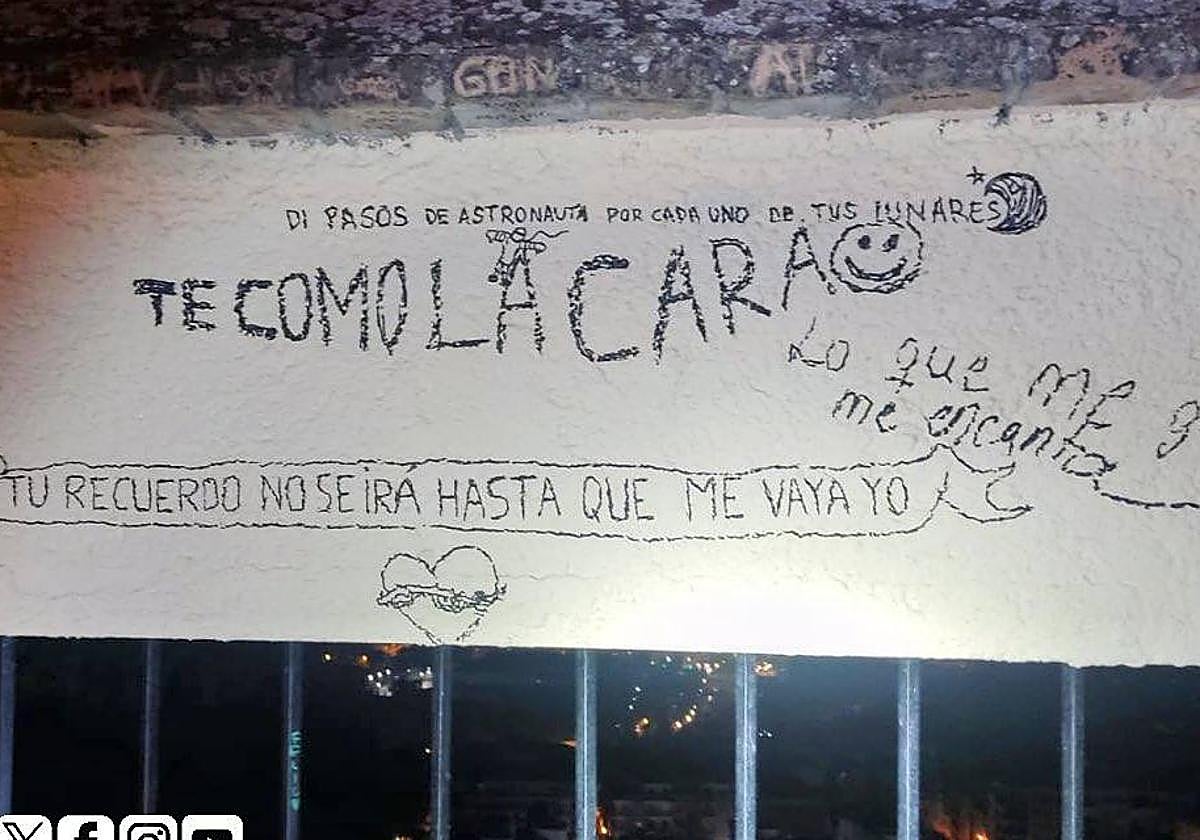 GBN
AI
DI PASOS DE ASTRONAUTA POR CADA UNO DE TUS LUNARES
TE COMO LA CARA
Lo que ME g
me encanta
TU RECUERDO NO SE IRÁ HASTA QUE ME VAYA YO